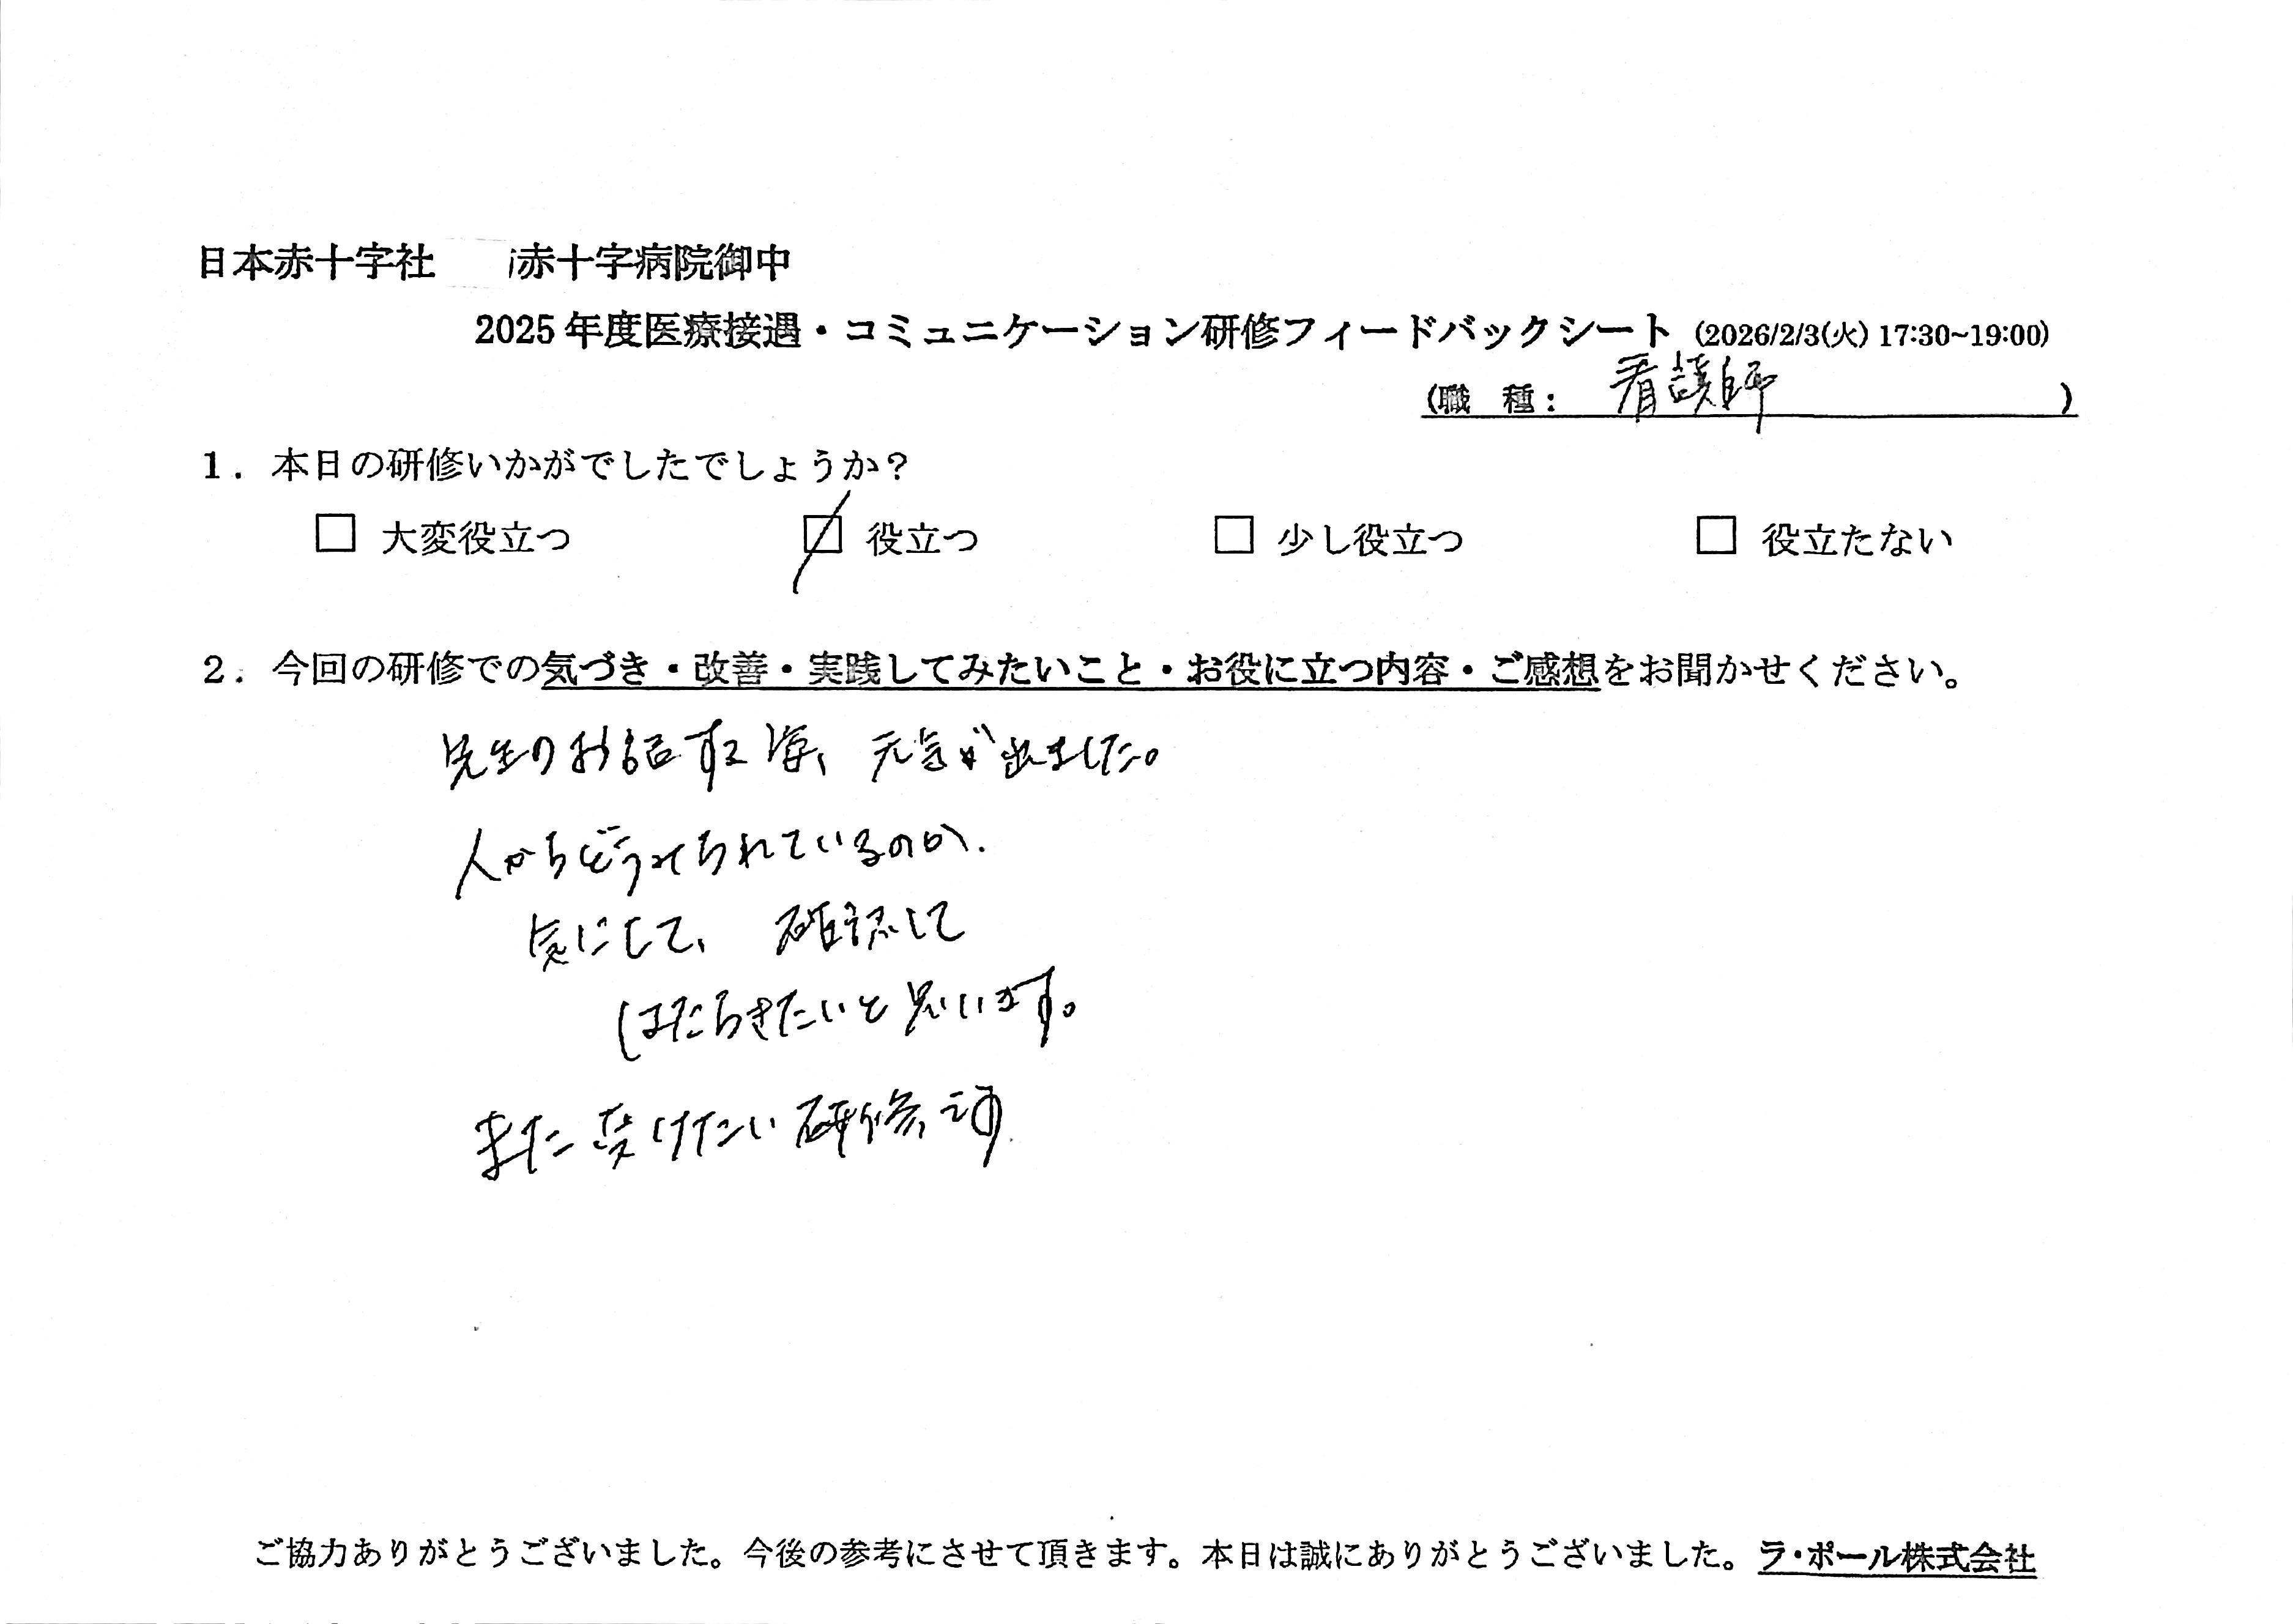 日本赤十字社 赤十字病院御中
2025年度医療接遇・コミュニケーション研修フィードバックシート (2026/2/3(火) 17:30~19:00)
(職 種: 看護師 )
1. 本日の研修いかがでしたでしょうか?
□ 大変役立つ ☑ 役立つ □ 少し役立つ □ 役立たない
2. 今回の研修での気づき・改善・実践してみたいこと・お役に立つ内容・ご感想をお聞かせください。
先生のお話 元気が出ました。
人からどうみられているのか、
気にして、確認して
はたらきたいと思います。
また受けたい研修
ご協力ありがとうございました。今後の参考にさせて頂きます。本日は誠にありがとうございました。ラ・ポール株式会社